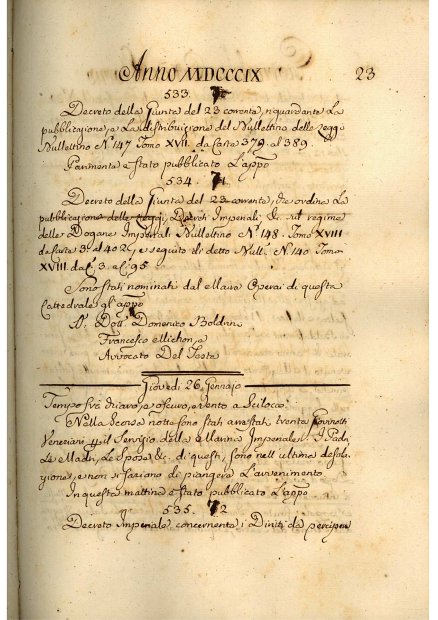 Anno MDCCCIX 23
533.
Decreto della Giunta del 23 corrente, riguardante La
pubblicazione, e La distribuizione del Bullettino delle Leggi
Bullettino N. 147 Tomo XVII. da Carta 379. al 389
Parimente è stato pubblicato L'appo
534. 71.
Decreto della Giunta del 23 corrente, che ordina La
pubblicazione delle Leggi, Decreti Imperiali, &. sul regime
delle Dogane Imperiali Bullettino N. 148. Tomo XVIII
da Carte 3. al 402, e seguito di detto Bull. N. 140 Tomo
XVIII da C. 3. a C. 95
Sono stati nominati dal Maire Operai di questa
Cattedrale gl'appo
SS. Dott. Domenico Boldrini
Francesco Michon, e
Avvocato Del Testa
Giovedì 26. Gennajo
Tempo fra chiaro, e oscuro, e vento a Scilocco
Nella scorsa notte sono stati arrestati trenta Giovinotti
Veneziani per il Servigio della Marina Imperiale. I Padri
Le Madri, Le Spose &. di questi, sono nell'ultima desola-
zione, e non si saziano di piangere L'avvenimento
In questa mattina è stato pubblicato L'appo
535. 72
Decreto Imperiale concernente i Diritti da percipere